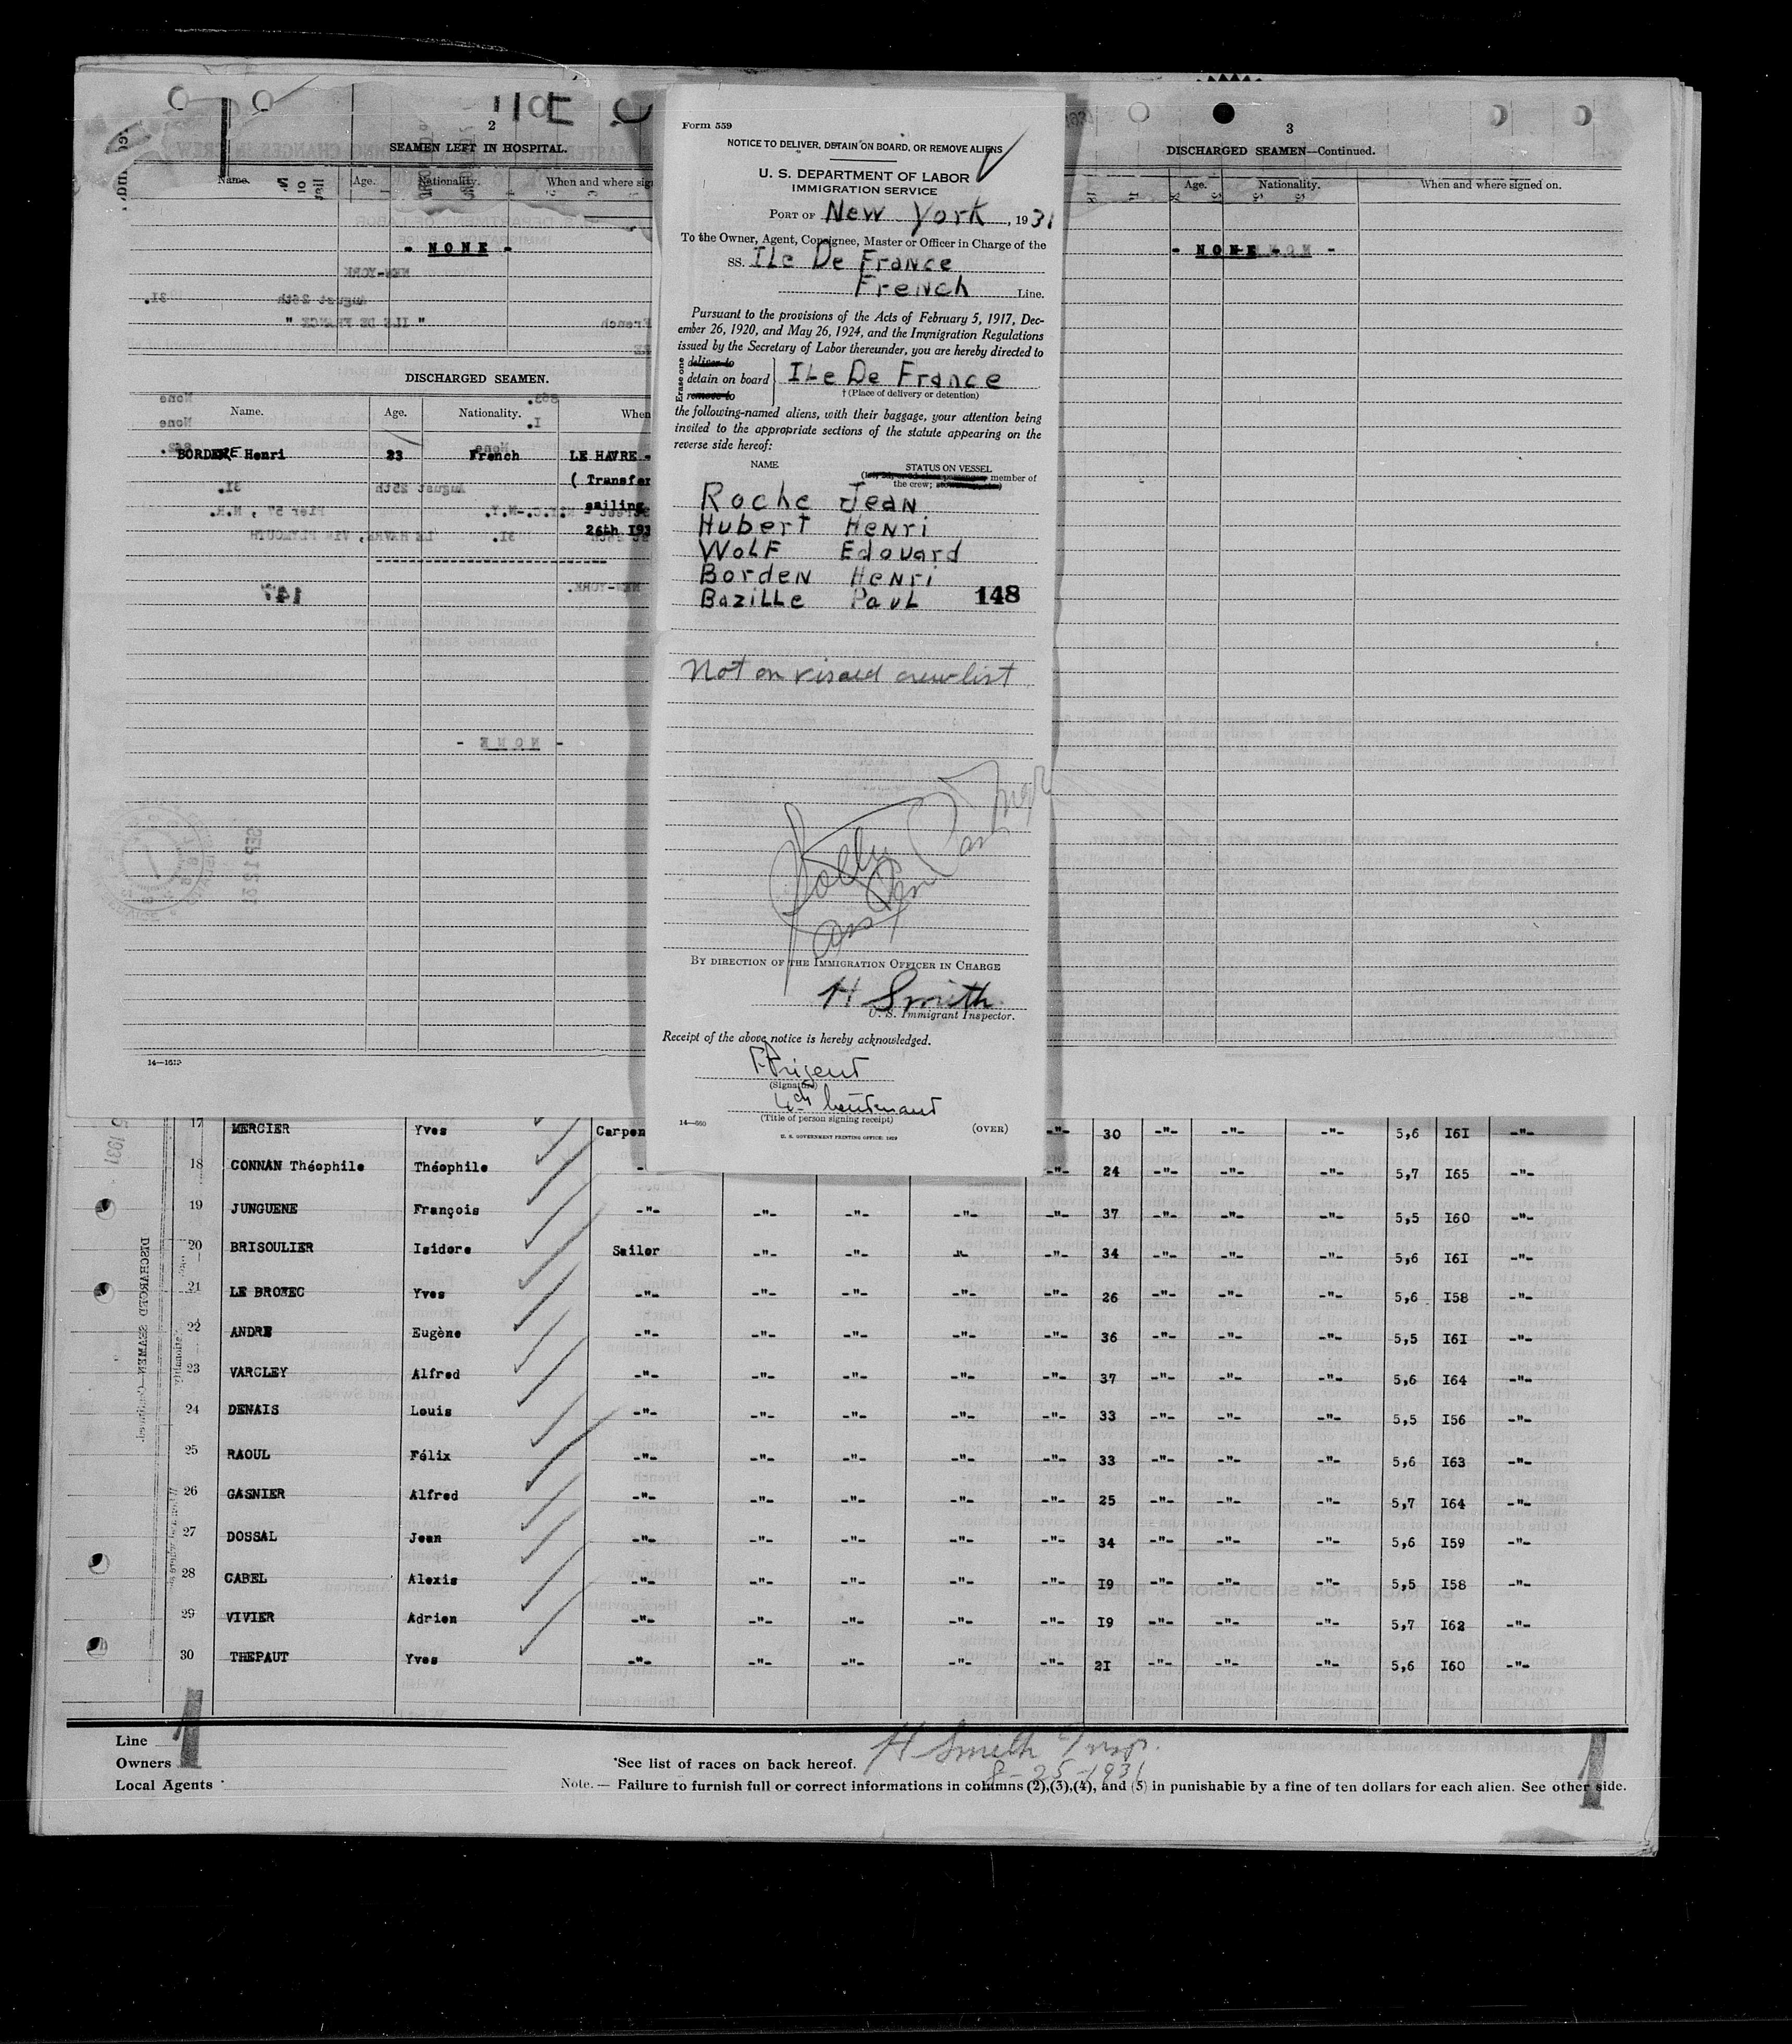 2
SEAMEN LEFT IN HOSPITAL.
Name. Age. Nationality. When and where
- NONE -
DISCHARGED SEAMEN.
Name. Age. Nationality. When
BORDERE Henri 23 French LE HAVRE -
( Transfer
sailing
26th 193
14—1619
3
DISCHARGED SEAMEN—Continued.
Age. Nationality. When and where signed on.
- NONE -
Form 559
NOTICE TO DELIVER, DETAIN ON BOARD, OR REMOVE ALIENS
U. S. DEPARTMENT OF LABOR
IMMIGRATION SERVICE
PORT OF New York, 1931
To the Owner, Agent, Consignee, Master or Officer in Charge of the
SS. ILe De France
French Line.
Pursuant to the provisions of the Acts of February 5, 1917, Dec-
ember 26, 1920, and May 26, 1924, and the Immigration Regulations
issued by the Secretary of Labor thereunder, you are hereby directed to
Erase one
deliver to
detain on board ILe De France
remove to
† (Place of delivery or detention)
the following-named aliens, with their baggage, your attention being
invited to the appropriate sections of the statute appearing on the
reverse side hereof:
NAME STATUS ON VESSEL
member of
the crew;
Roche Jean
Hubert Henri
Wolf Edouard
Borden Henri
Bazille Paul 148
Not on visaed crew list
BY DIRECTION OF THE IMMIGRATION OFFICER IN CHARGE
H Smith
U. S. Immigrant Inspector.
Receipt of the above notice is hereby acknowledged.
(Signature)
lieutenant
(Title of person signing receipt)
14—660 (OVER)
U. S. GOVERNMENT PRINTING OFFICE: 1929
17 MERCIER Yves Carpen -"- 30 -"- -"- -"- 5,6 I6I -"-
18 CONNAN Théophile Théophile -"- 24 -"- -"- -"- 5,7 I65 -"-
19 JUNGUENE François -"- -"- -"- -"- -"- 37 -"- -"- -"- 5,5 I60 -"-
20 BRISOULIER Isidore Sailor -"- -"- -"- -"- 34 -"- -"- -"- 5,6 I6I -"-
21 LE BROZEC Yves -"- -"- -"- -"- -"- 26 -"- -"- -"- 5,6 I58 -"-
22 ANDRE Eugène -"- -"- -"- -"- -"- 36 -"- -"- -"- 5,5 I6I -"-
23 VARCLEY Alfred -"- -"- -"- -"- -"- 37 -"- -"- -"- 5,6 I64 -"-
24 DENAIS Louis -"- -"- -"- -"- -"- 33 -"- -"- -"- 5,5 I56 -"-
25 RAOUL Félix -"- -"- -"- -"- -"- 33 -"- -"- -"- 5,6 I63 -"-
26 GASNIER Alfred -"- -"- -"- -"- -"- 25 -"- -"- -"- 5,7 I64 -"-
27 DOSSAL Jean -"- -"- -"- -"- -"- 34 -"- -"- -"- 5,6 I59 -"-
28 CABEL Alexis -"- -"- -"- -"- -"- I9 -"- -"- -"- 5,5 I58 -"-
29 VIVIER Adrien -"- -"- -"- -"- -"- I9 -"- -"- -"- 5,7 I62 -"-
30 THEPAUT Yves -"- -"- -"- -"- -"- 2I -"- -"- -"- 5,6 I60 -"-
Line
Owners
Local Agents
*See list of races on back hereof.
H Smith Insp.
8-25-1931
Note. — Failure to furnish full or correct informations in columns (2),(3),(4), and (5) in punishable by a fine of ten dollars for each alien. See other side.